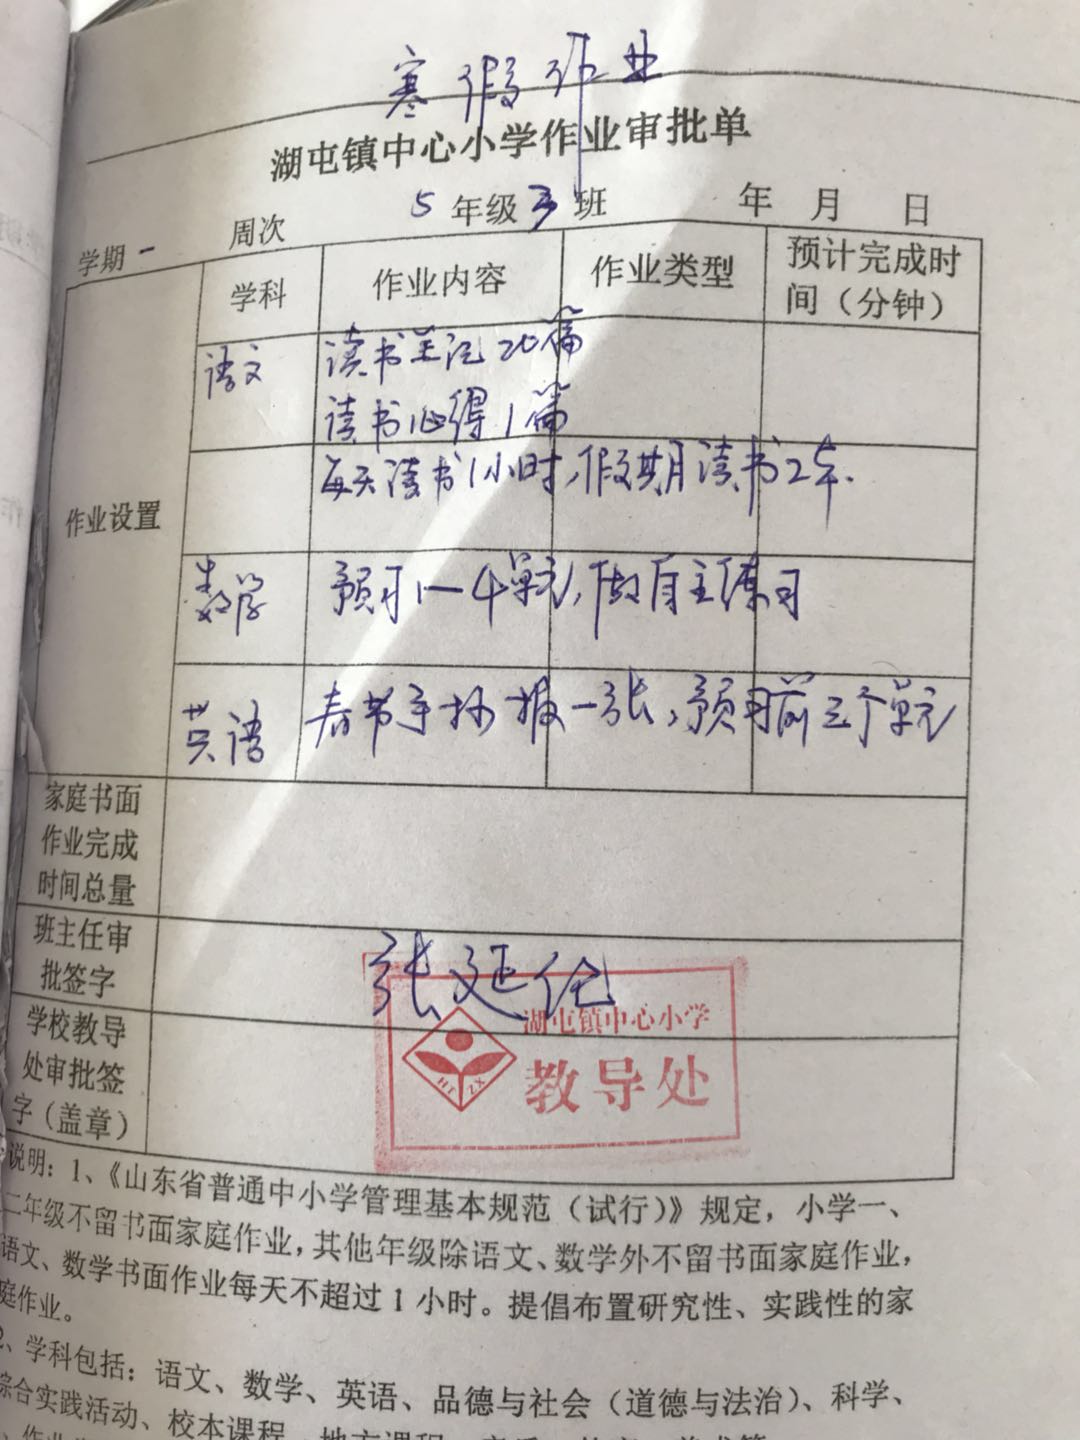 寒假作业
湖屯镇中心小学作业审批单
学期 一 周次 5 年级 3 班 年 月 日
学科 作业内容 作业类型 预计完成时间（分钟）
作业设置
语文 读书笔记20篇
读书心得1篇
每天读书1小时,假期读书2本.
数学 预习1—4单元,做自主练习
英语 春节手抄报一张,预习前三个单元
家庭书面
作业完成
时间总量
班主任审
批签字
张延伦
学校教导
处审批签
字（盖章）
湖屯镇中心小学
教导处
HTZX
说明：1、《山东省普通中小学管理基本规范（试行）》规定，小学一、
二年级不留书面家庭作业，其他年级除语文、数学外不留书面家庭作业，
语文、数学书面作业每天不超过 1 小时。提倡布置研究性、实践性的家
庭作业。
2、学科包括：语文、数学、英语、品德与社会（道德与法治）、科学、
综合实践活动、校本课程、地方课程